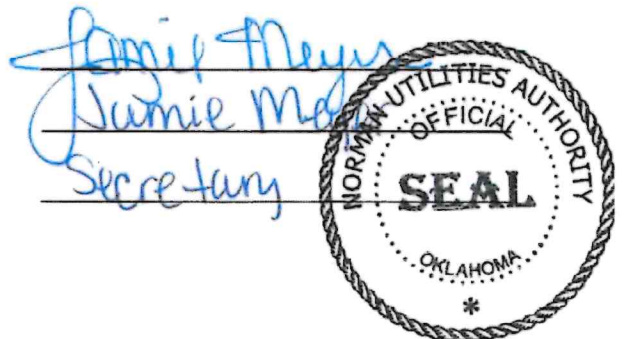 Jamie Meyer
Jamie Me
Secretary
NORMAN UTILITIES AUTHORITY
OFFICIAL
SEAL
OKLAHOMA
*